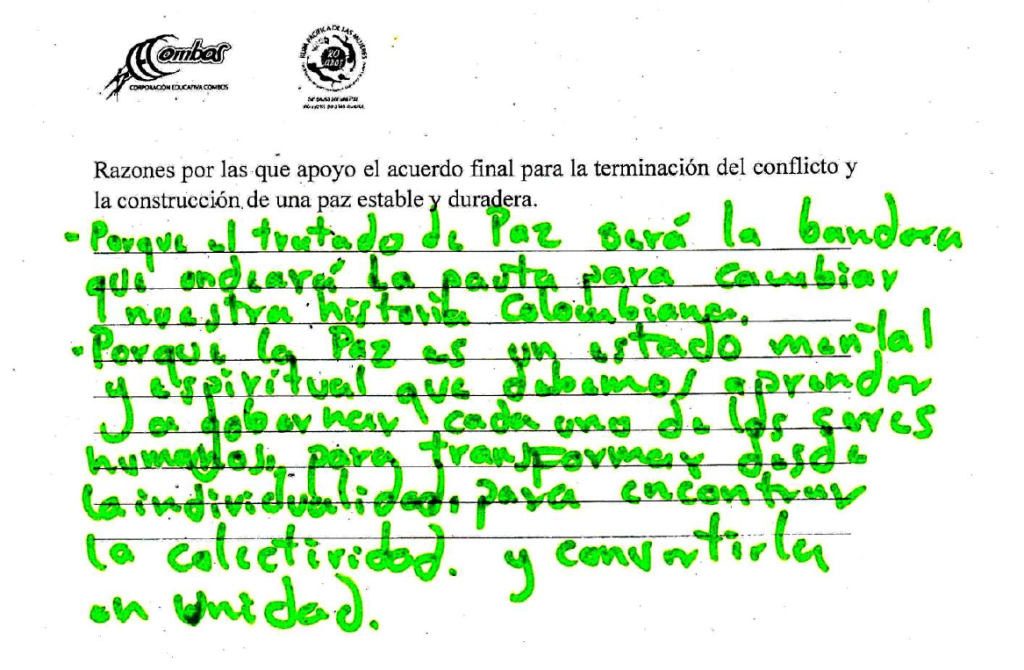 Combos
CORPORACIÓN EDUCATIVA COMBOS
RUTA PACÍFICA DE LAS MUJERES
20
AÑOS
Razones por las que apoyo el acuerdo final para la terminación del conflicto y
la construcción de una paz estable y duradera.
- Porque el tratado de Paz será la bandera
que ondeará la pauta para cambiar
nuestra historia Colombiana.
- Porque la Paz es un estado mental
y espiritual que debemos aprender
a gobernar cada uno de los seres
humanos, para transformar desde
la individualidad, para encontrar
la colectividad. y convertirla
en unidad.